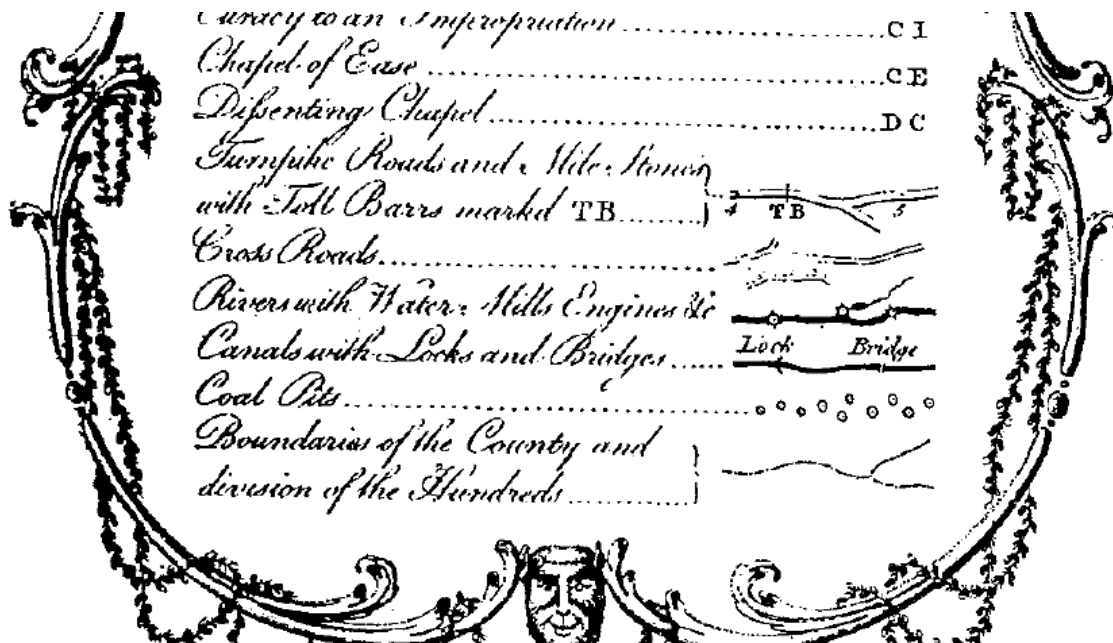 Curacy to an Impropriation CI
Chapel of Ease CE
Diſsenting Chapel DC
Turnpike Roads and Mile Stones
with Toll Barrs markd TB
4 TB 5
Cross Roads
Rivers with Water Mills Engines &c
Canals with Locks and Bridges Lock Bridge
Coal Pits
Boundaries of the County and
division of the Hundreds